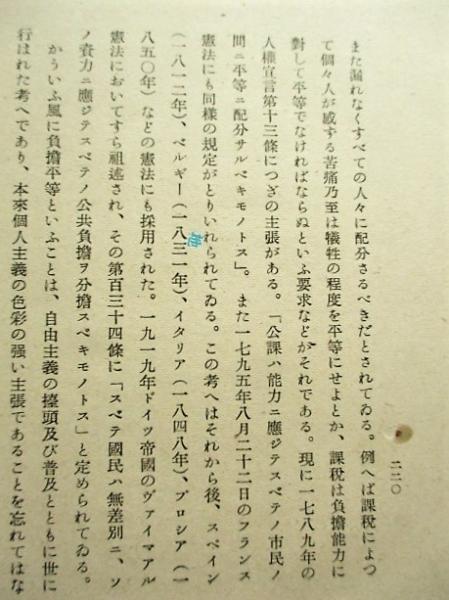 二二〇
また漏れなくすべての人々に配分さるべきだとされてゐる。例へば課税によつ
て個々人が感ずる苦痛乃至は犠牲の程度を平等にせよとか、課税は負擔能力に
對して平等でなければならぬといふ要求などがそれである。現に一七八九年の
人權宣言第十三條につぎの主張がある。「公課ハ能力ニ應ジテスベテノ市民ノ
間ニ平等ニ配分サルベキモノトス」。また一七九五年八月二十二日のフランス
憲法にも同様の規定がとりいれられてゐる。この考へはそれから後、スペイン
(一八一二年)、ベルギー(一八三一年)、イタリア(一八四八年)、プロシア(一
八五〇年)などの憲法にも採用された。一九一九年ドイツ帝國のヴァイマアル
憲法においてすら祖述され、その第百三十四條に「スベテ國民ハ無差別ニ、ソ
ノ資力ニ應ジテスベテノ公共負擔ヲ分擔スベキモノトス」と定められてゐる。
かういふ風に負擔平等といふことは、自由主義の擡頭及び普及とともに世に
行はれた考へであり、本來個人主義の色彩の强い主張であることを忘れてはな